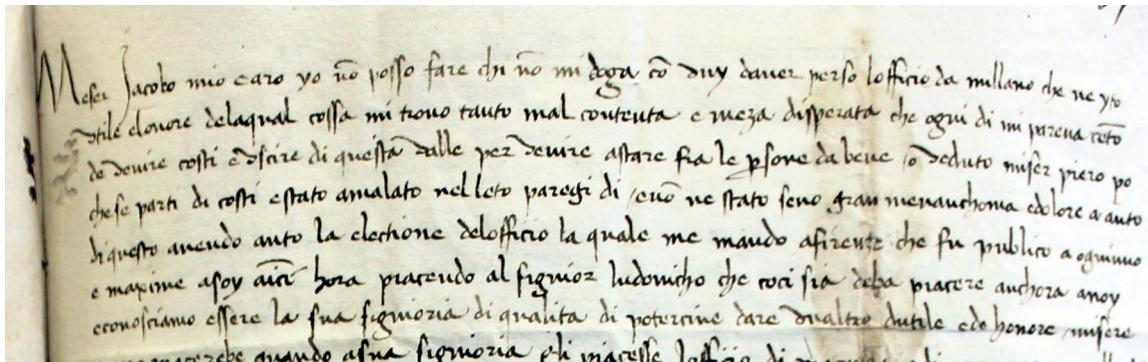 Meser Jacobo mio caro yo nõ posso fare chi nõ mi doga cõ vuy daver perso lofficio da millano che ne yto
dutile elonore delaqual cossa mi trovo tanto mal contenta e meza disperata che ogni di mi pareva
de venire costi di questa valle per venire astare fra le psone da bene veduto miser piero po
chese parti di costi estato amalato nel leto paregi di enõ ne stato seno gran menanchonia edolore a auto
di questo avendo auto la electione delofficio la quale me mando afirenze che fu publico a ogniuno
e maxime asoy amici hora piacendo al signior ludovicho che coci sia deba piacere anchora anoy
econosciamo essere la sua signioria di qualita di potercine dare dutile ede honore misere
quando asua signioria gli piacesse lofficio di